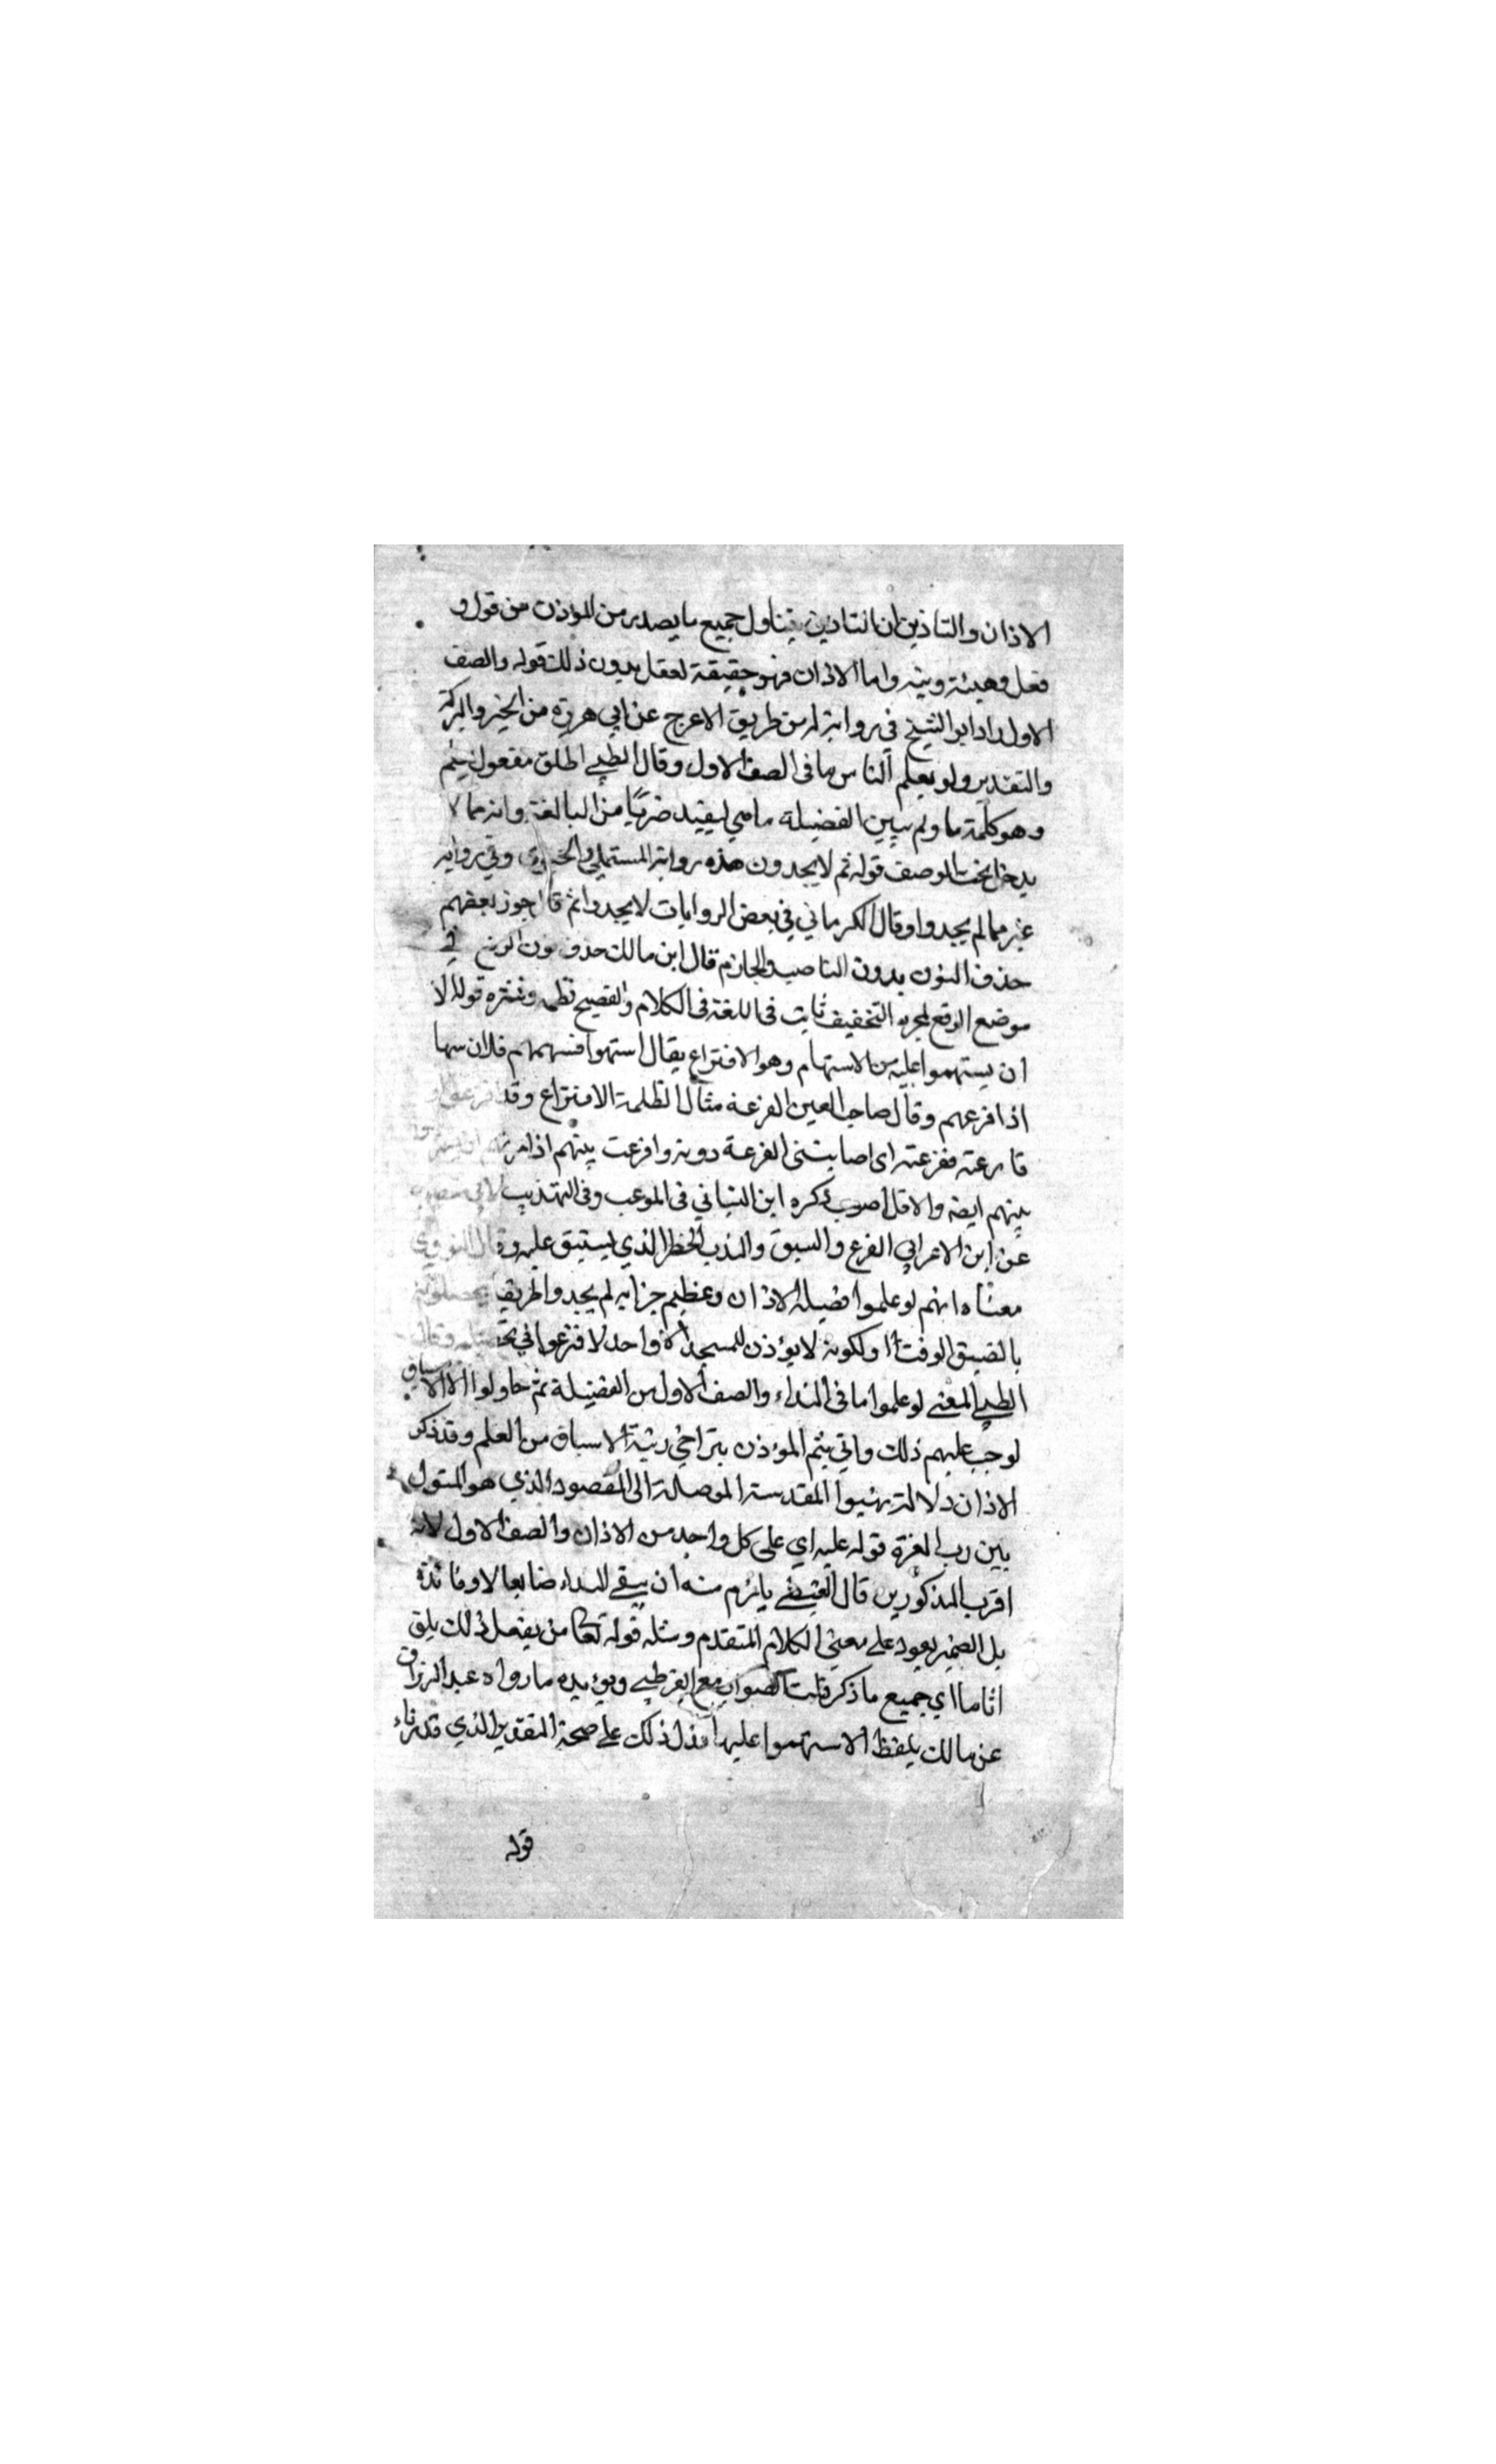 الاذان والتاذين ان التاذين يتناول جميع ما يصدر من المؤذن من قول و
فعل وهيئة ونية واما الاذان فهو حقيقة تعقل بدون ذلك قوله والصف
الاول زاد ابو الشيخ في رواية له من طريق الاعرج عن ابي هريرة من الخير والبركة
والتقدير ولو يعلم الناس ما في الصف الاول وقال الطيبي اطلق مفعول يعلم
وهو كلمة ما ولم يبين الفضيلة ما هي ليفيد ضربا من المبالغة وانه مما لا
يدخل تحت الوصف قوله ثم لا يجدون هذه رواية المستملي والحموي وفي رواية
غيرهما لم يجدوا وقال الكرماني في بعض الروايات لا يجدوا ثم قال جوز بعضهم
حذف النون بدون الناصب والجازم قال ابن مالك حذف نون الرفع في
موضع الرفع لمجرد التخفيف ثابت في اللغة في الكلام والفصيح نظمه ونثره قوله الا
ان يستهموا عليه من الاستهام وهو الاقتراع يقال استهموا فسهمهم فلان سهما
اذا اقرعهم وقال صاحب العين القرعة مثال الظلمة الاقتراع وقد اقرعوا و
قارعته فقرعته اى اصابتنى القرعة دونه واقرعت بينهم اذا امرتهم ان
بينهم ايضا والاقل اصوب ذكره ابن التياني في الموعب وفى التهذيب لابي منصور
عن ابن الاعرابي القرع والسبق والندب الخطر الذي يستبق عليه وقال النووي
معناه انهم لو علموا فضيلة الاذان وعظيم جزايه لم يجدوا طريقا يحصلونه
بالضيق الوقت او لكونه لا يؤذن للمسجد الا واحد لاقترعوا في تحصيله وقال
الطيبي المعنى لو علموا ما فى النداء والصف الاول من الفضيلة ثم حاولوا الاستباق
لوجب عليهم ذلك واتي بثم المؤذن بتراخي رتبة الاستباق من العلم وقد ذكر
الاذان دلالة تهيوا المقدمة الموصلة الى المقصود الذي هو المثول
بين رب العزة قوله عليه اي على كل واحد من الاذان والصف الاول لانه
اقرب المذكورين قال القرطبي يلزم منه ان يبقى النداء ضايعا لا وفائدة
بل الضمير يعود على معنى الكلام المتقدم ومثله قوله تعالى من يفعل ذلك يلق
اثاما اي جميع ما ذكر قلت الصواب مع القرطبي ويؤيده ما رواه عبد الرزاق
عن مالك بلفظ الاستهموا عليها فدل ذلك على صحة التقدير الذي قدرناه
قوله